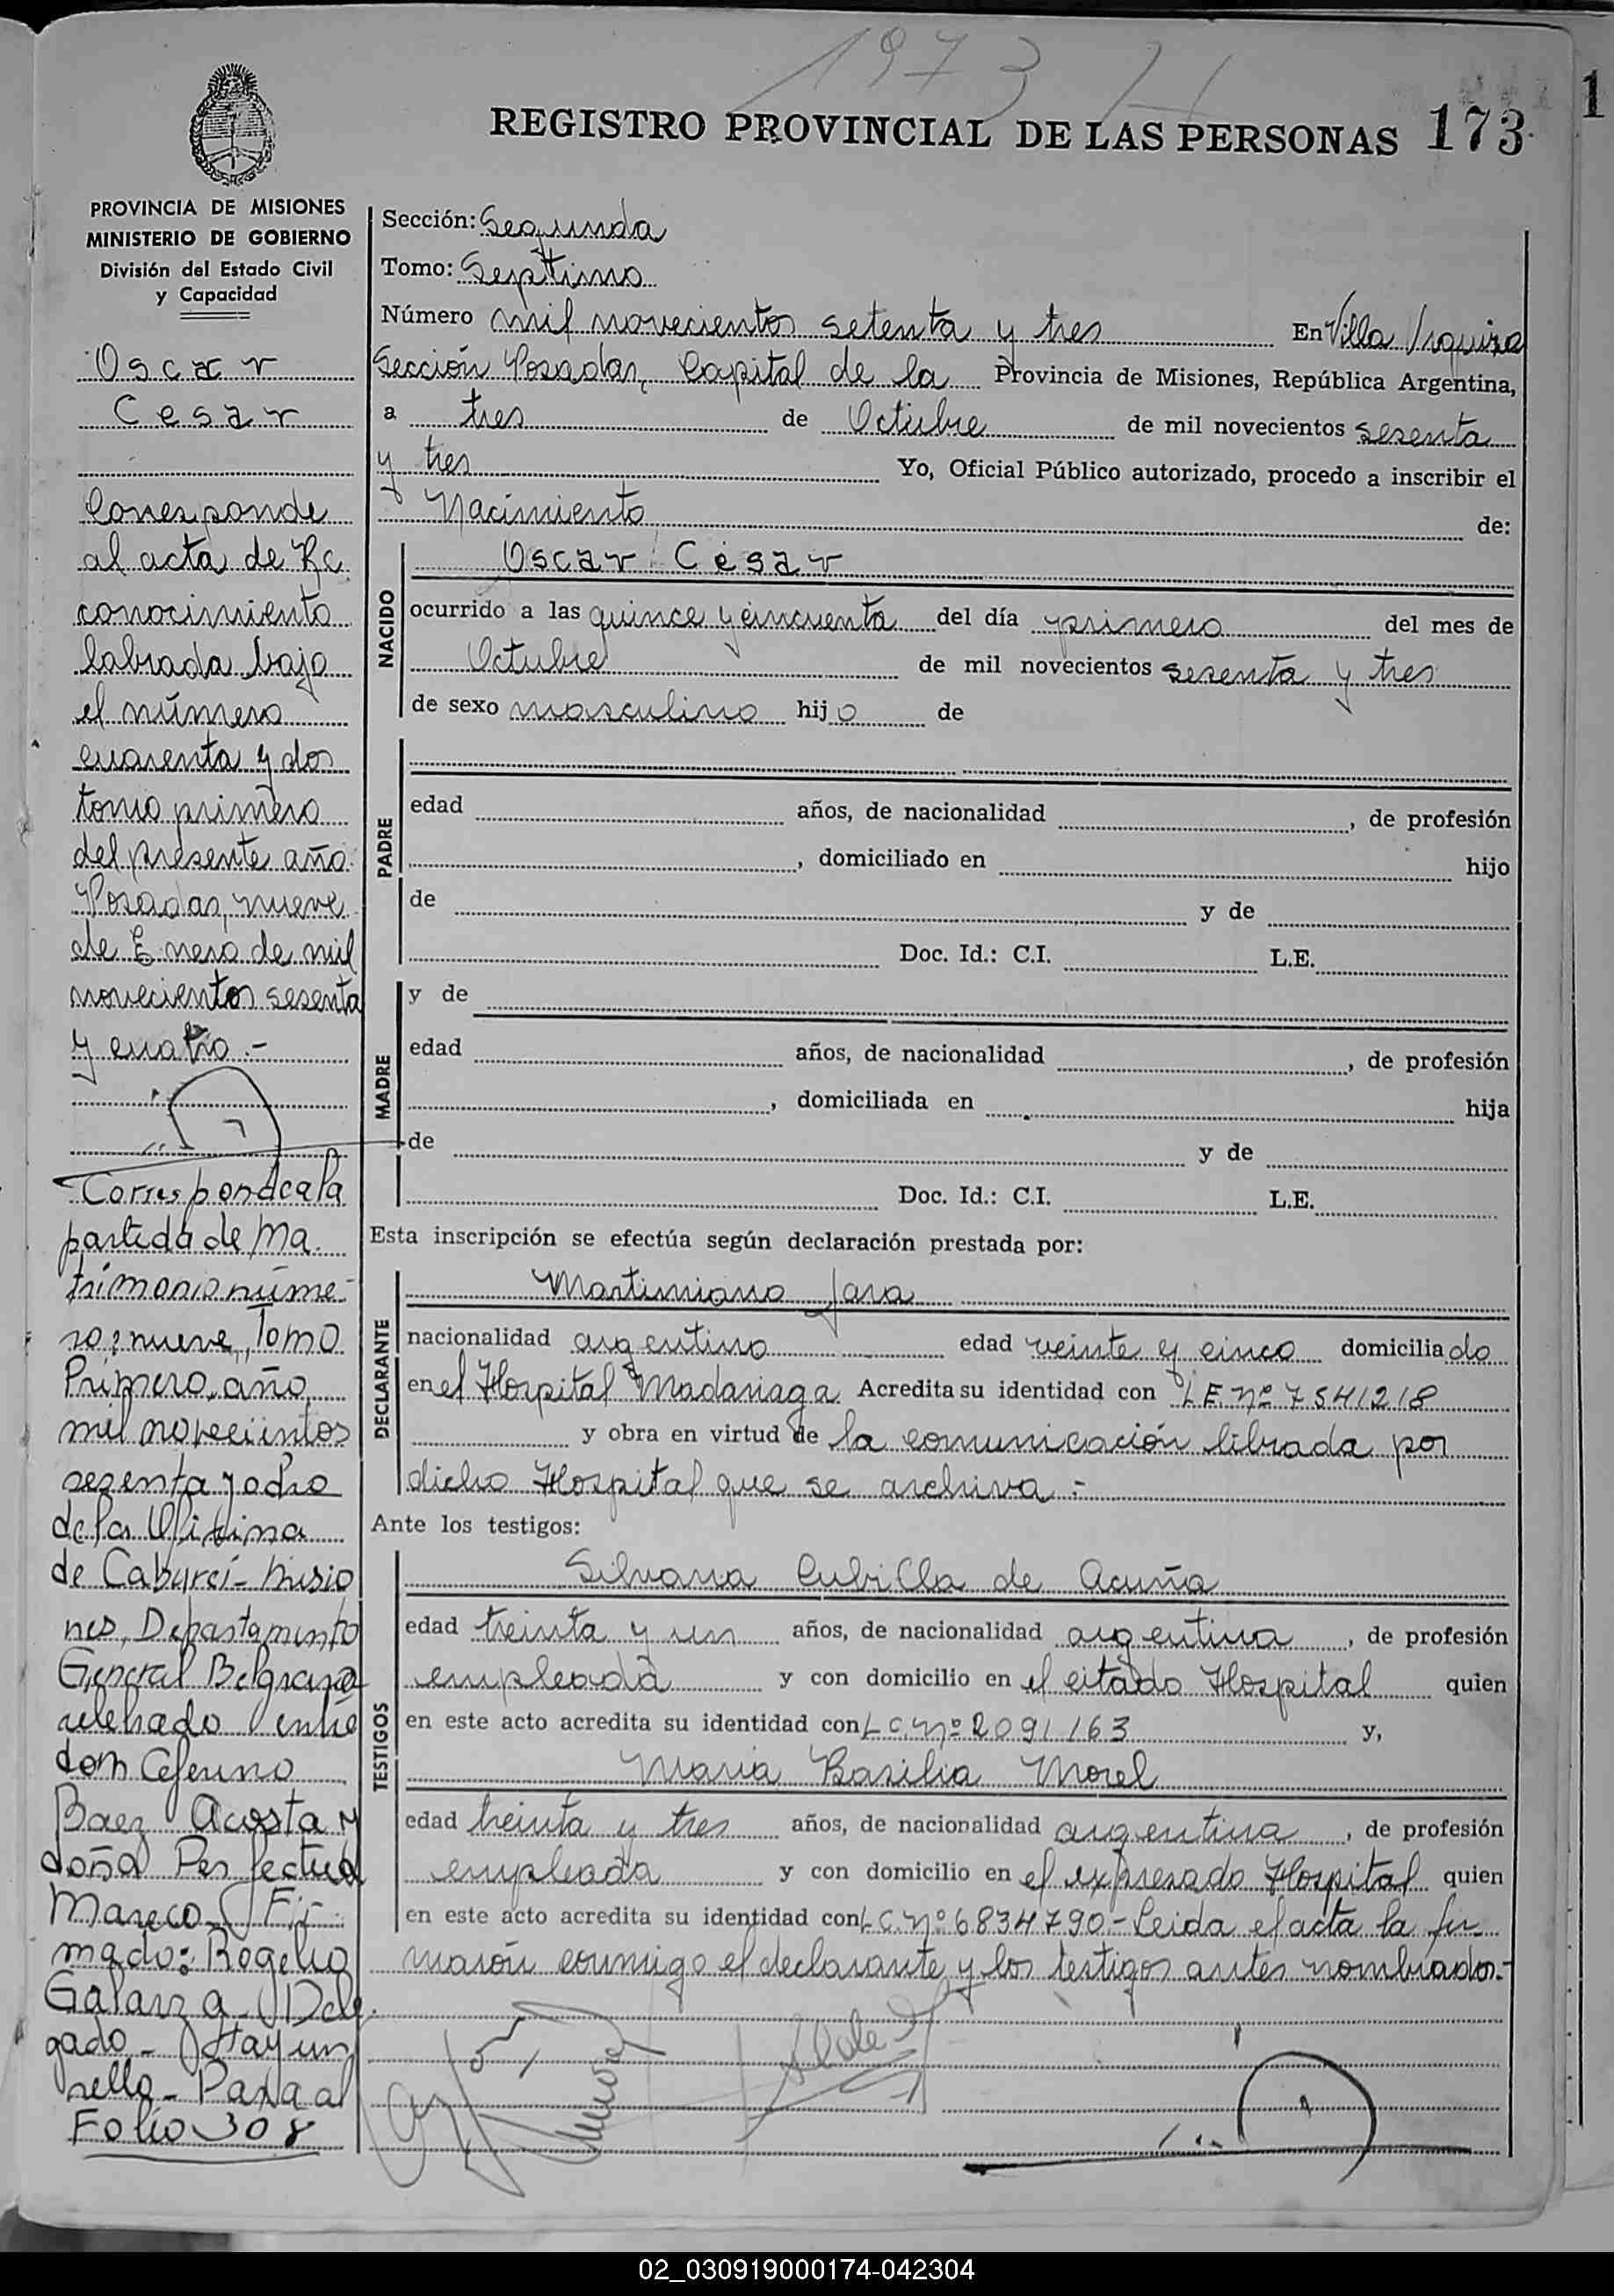 1973 H
REGISTRO PROVINCIAL DE LAS PERSONAS 173
1
PROVINCIA DE MISIONES
MINISTERIO DE GOBIERNO
División del Estado Civil
y Capacidad
Oscar
Cesar
Corresponde
al acta de Re
conocimiento
labrada bajo
el número
cuarenta y dos
tomo primero
del presente año.
Posadas, nueve
de Enero de mil
novecientos sesenta
y cuatro.-
Corresponde a la
partida de Ma
trimonio núme-
ro: nueve, Tomo
Primero, año
mil novecientos
sesenta y ocho
de la Oficina
de Caburei - Misio
nes, Departamento
General Belgrano
celebrado entre
don Ceferino
Baez Acosta y
doña Perfectua
Mareco - Fir-
mado: Rogelio
Galarza - Dele
gado - Hay un
sello - Pasa al
Folio 308
Sección: Segunda
Tomo: Septimo
Número mil novecientos setenta y tres En Villa Urquiza
Sección Posadas, Capital de la Provincia de Misiones, República Argentina,
a tres de Octubre de mil novecientos sesenta
y tres Yo, Oficial Público autorizado, procedo a inscribir el
Nacimiento de:
NACIDO
Oscar Cesar
ocurrido a las quince y cincuenta del día primero del mes de
Octubre de mil novecientos sesenta y tres
de sexo masculino hijo de
PADRE
edad años, de nacionalidad , de profesión
, domiciliado en hijo
de y de
Doc. Id.: C.I. L.E.
MADRE
y de
edad años, de nacionalidad , de profesión
, domiciliada en hija
de y de
Doc. Id.: C.I. L.E.
Esta inscripción se efectúa según declaración prestada por:
DECLARANTE
Martimiano Jara
nacionalidad argentino edad veinte y cinco domiciliado
en el Hospital Madariaga Acredita su identidad con L.E. nº 7541218
y obra en virtud de la comunicación librada por
dicho Hospital que se archiva.-
Ante los testigos:
TESTIGOS
Silvana Cubilla de Acuña
edad treinta y un años, de nacionalidad argentina, de profesión
empleada y con domicilio en el citado Hospital quien
en este acto acredita su identidad con L.C. nº 2091163 y,
Maria Basilia Morel
edad treinta y tres años, de nacionalidad argentina, de profesión
empleada y con domicilio en el expresado Hospital quien
en este acto acredita su identidad con L.C. nº 6834790.- Leida el acta la fir-
maron conmigo el declarante y los testigos antes nombrados.-
02_030919000174-042304